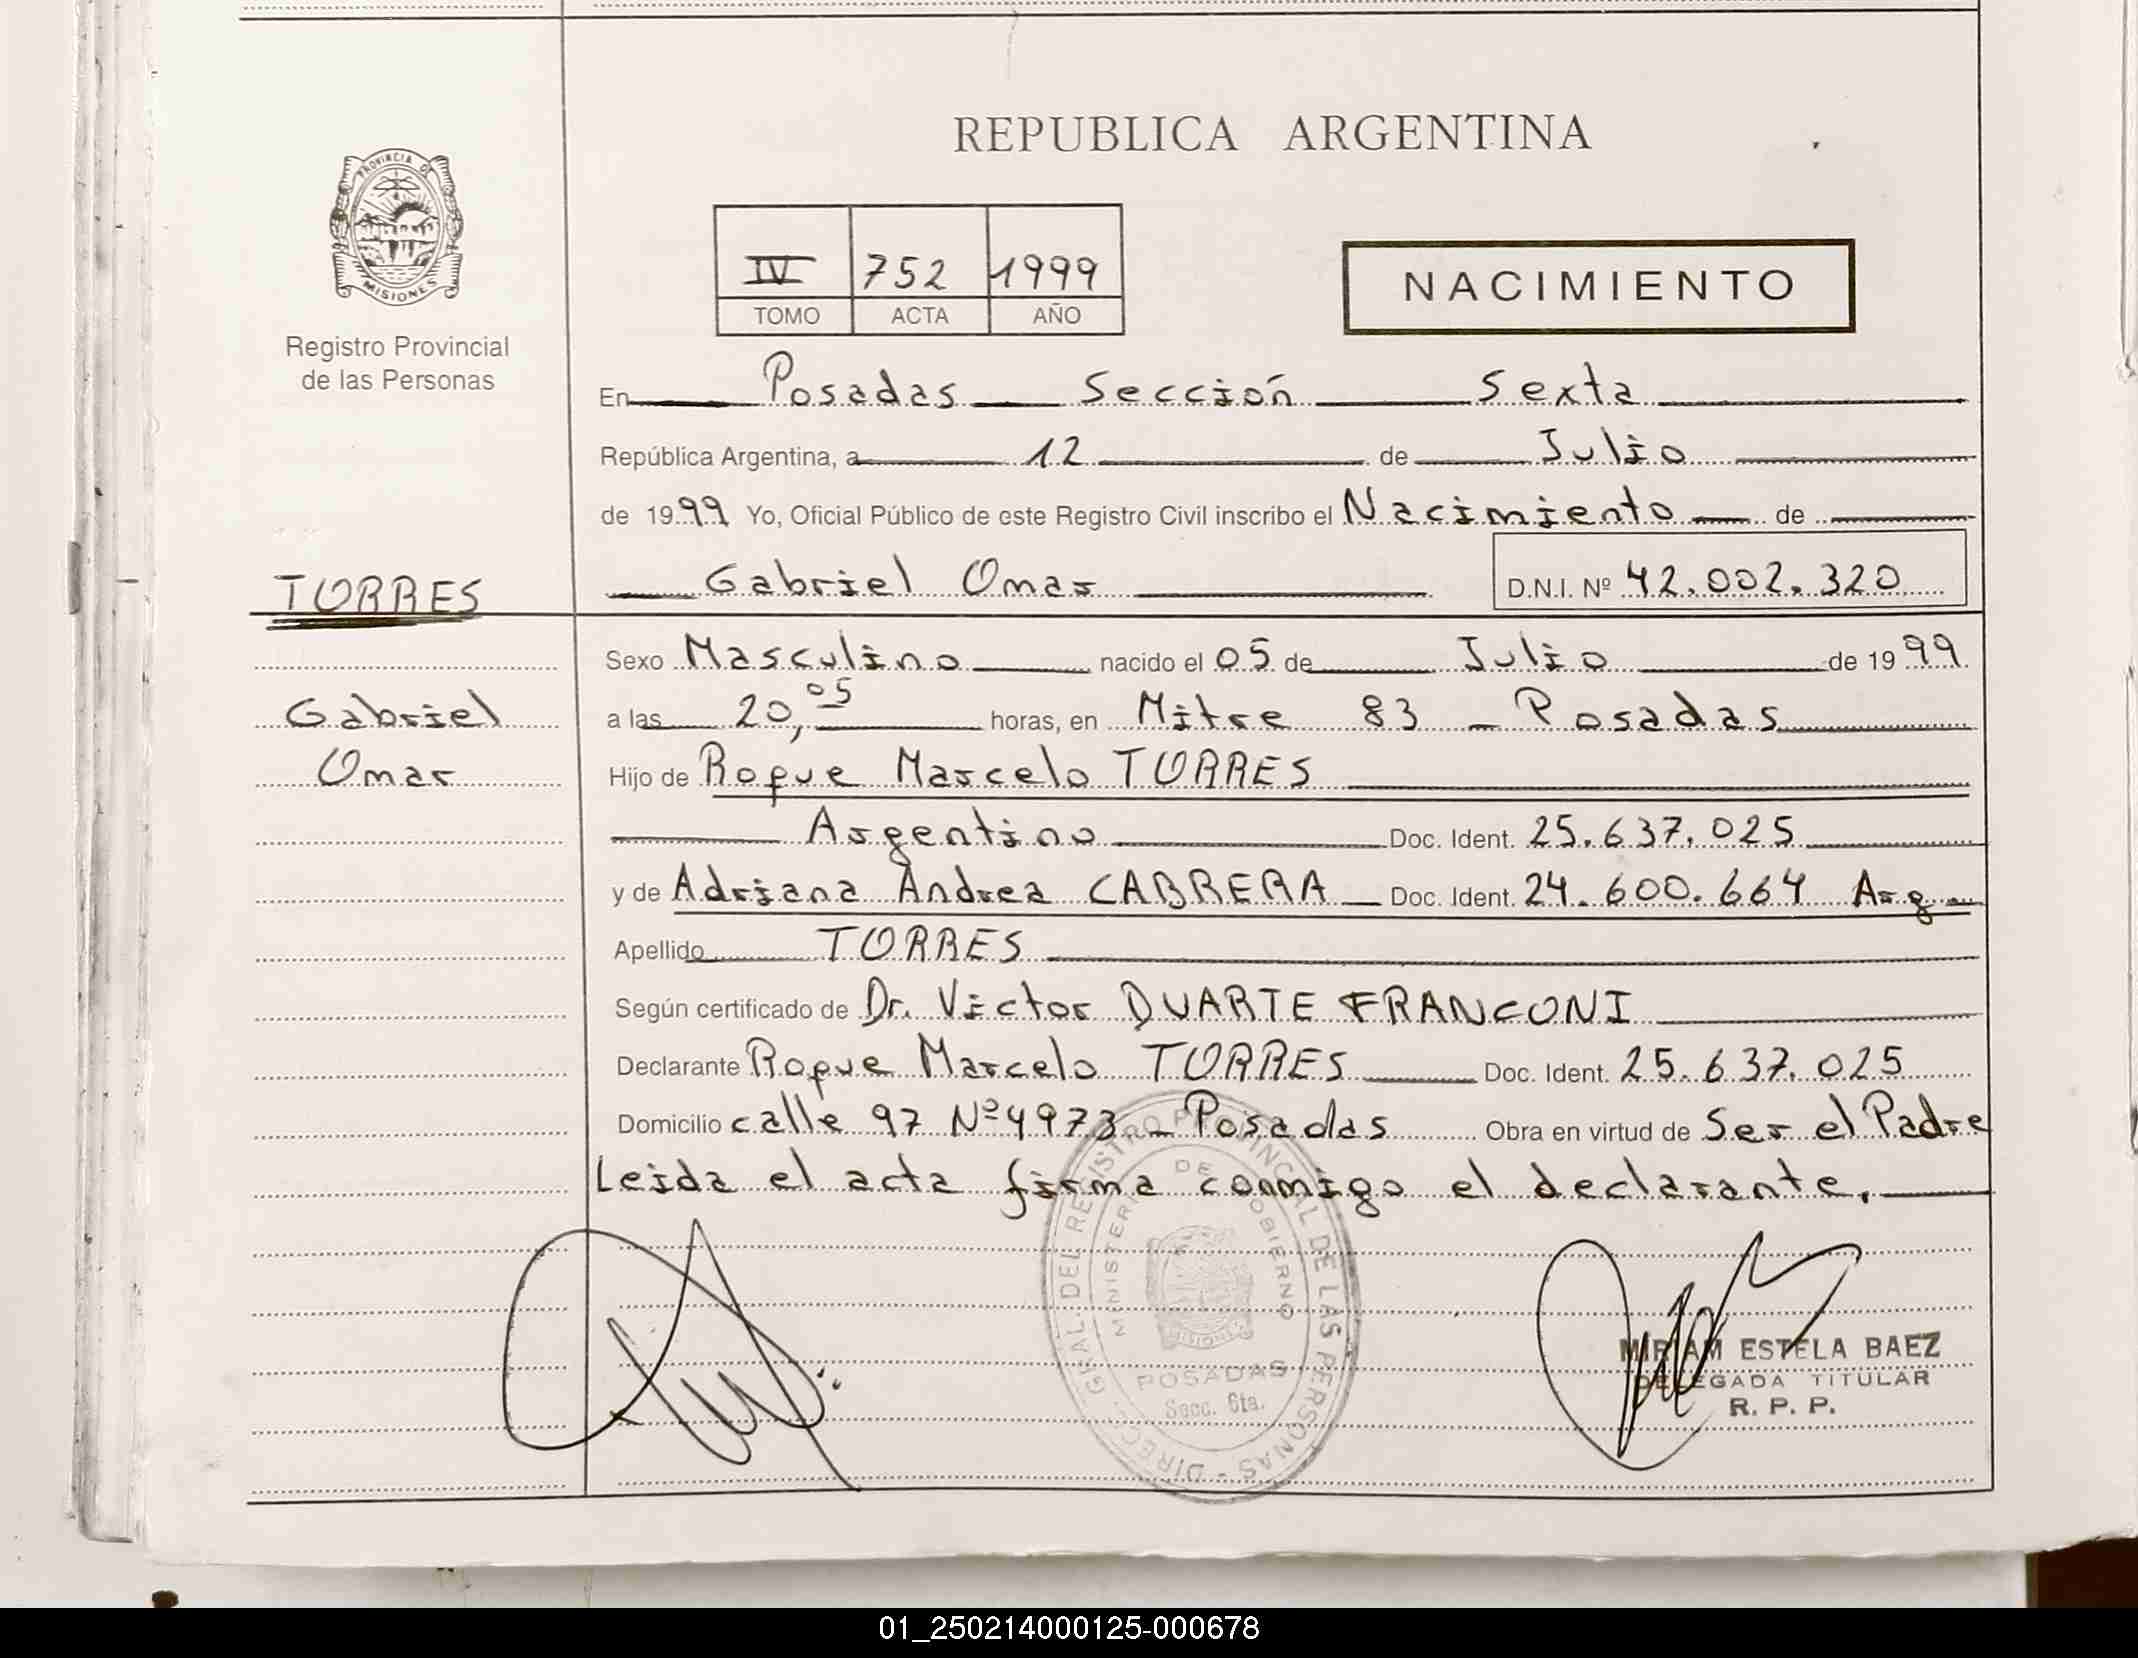 REPUBLICA ARGENTINA
PROVINCIA DE
MISIONES
Registro Provincial
de las Personas
IV 752 1999
TOMO ACTA AÑO
NACIMIENTO
En Posadas Sección Sexta
República Argentina, a 12 de Julio
de 1999 Yo, Oficial Público de este Registro Civil inscribo el Nacimiento de
Gabriel Omar D.N.I. Nº 42.002.320
TORRES
Gabriel
Omar
Sexo Masculino nacido el 05 de Julio de 1999
a las 20,05 horas, en Mitre 83 - Posadas
Hijo de Roque Marcelo TORRES
Argentino Doc. Ident. 25.637.025
y de Adriana Andrea CABRERA Doc. Ident. 24.600.664 Arg.
Apellido TORRES
Según certificado de Dr. Victor DUARTE FRANCONI
Declarante Roque Marcelo TORRES Doc. Ident. 25.637.025
Domicilio calle 97 Nº 4973 - Posadas Obra en virtud de Ser el Padre
Leida el acta firma conmigo el declarante.
GRAL. DEL REGISTRO PROVINCIAL DE LAS PERSONAS -
MINISTERIO DE GOBIERNO
MISIONES
POSADAS
Secc. 6ta.
MIRIAM ESTELA BAEZ
DELEGADA TITULAR
R. P. P.
01_250214000125-000678